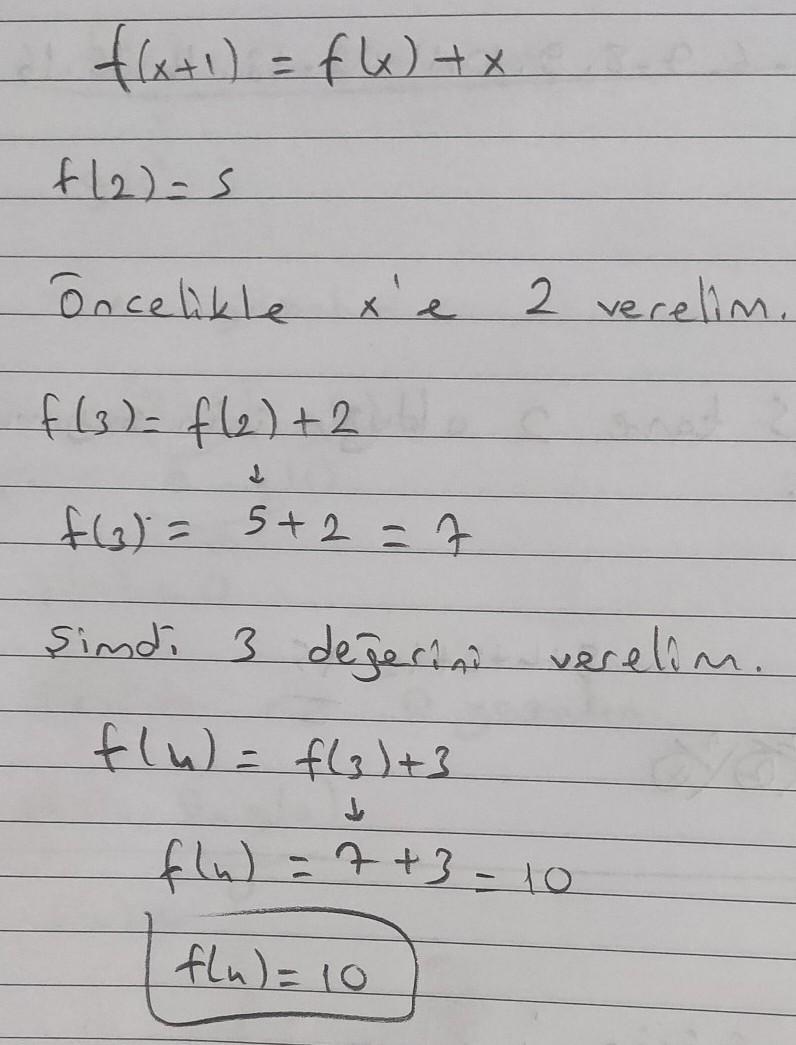 f(x+1) = f(x)+x
f(2)=5
Öncelikle x'e 2 verelim.
f(3)= f(2)+2
↓
f(3)= 5+2 = 7
Şimdi 3 değerini verelim.
f(4)= f(3)+3
↓
f(4) = 7+3=10
f(4)=10